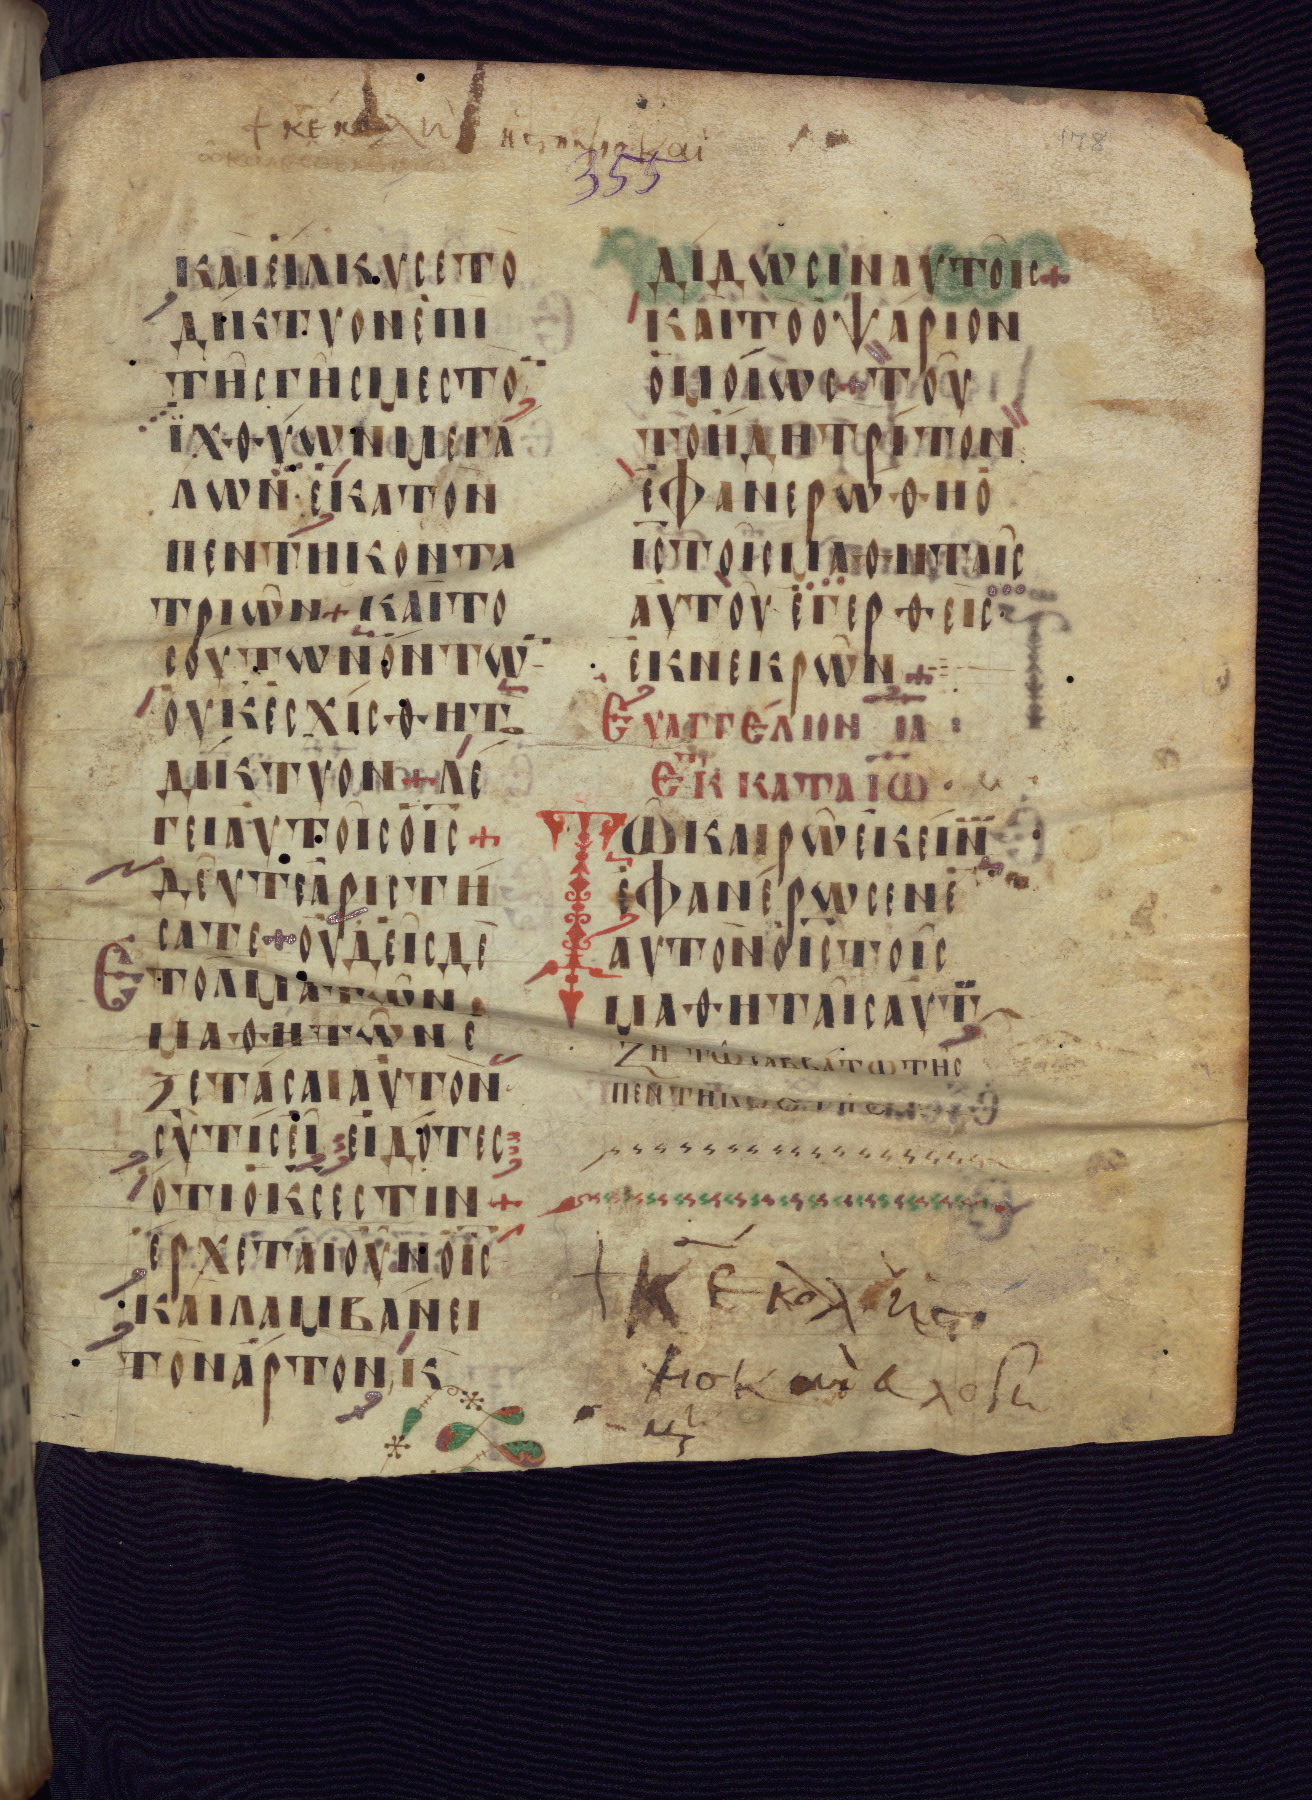 355
178
ΚΑΙΕΙΛΚΥΣΕΤΟ
ΔΙΚΤΥΟΝΕΠΙ
ΤΗΣΓΗΣΜΕΣΤΟ
ΪΧΘΥΩΝΜΕΓΑ
ΛΩΝ ΕΚΑΤΟΝ
ΠΕΝΤΗΚΟΝΤΑ
ΤΡΙΩΝ + ΚΑΙΤΟ
ΣΟΥΤΩΝΟΝΤΩ
ΟΥΚΕΣΧΙΣΘΗΤ
ΔΙΚΤΥΟΝ + ΛΕ
ΓΕΙΑΥΤΟΙΣΟΙΣ +
ΔΕΥΤΕΑΡΙΣΤΗ
ΣΑΤΕ + ΟΥΔΕΙΣΔΕ
ΕΤΟΛΜΑΤΩΝ
ΜΑΘΗΤΩΝΕ
ΞΕΤΑΣΑΙΑΥΤΟΝ
ΣΥΤΙΣΕΙ ΕΙΔΟΤΕΣ
ΟΤΙΟΚΣΕΣΤΙΝ +
ΕΡΧΕΤΑΙΟΥΝΟΙΣ
ΚΑΙΛΑΜΒΑΝΕΙ
ΤΟΝΑΡΤΟΝ, Κ
ΔΙΔΩΣΙΝΑΥΤΟΙΣ +
ΚΑΙΤΟΟΨΑΡΙΟΝ
ΟΜΟΙΩΣ + ΤΟΥ
ΤΟΗΔΗΤΡΙΤΟΝ
ΕΦΑΝΕΡΩΘΗΟ
ΙΣΤΟΙΣΜΑΘΗΤΑΙΣ
ΑΥΤΟΥ ΕΓΕΡΘΕΙΣ
ΕΚΝΕΚΡΩΝ +
ΕΥΑΓΓΕΛΙΟΝ ΙΑ
ΕΚ ΚΑΤΑ ΙΩ
ΤΩΚΑΙΡΩΕΚΕΙΝ
ΕΦΑΝΕΡΩΣΕΝΕ
ΑΥΤΟΝΟΙΣΤΟΙΣ
ΜΑΘΗΤΑΙΣΑΥΤ
ΖΗ ΤΩ ΣΑΒΒΑΤΩ ΤΗΣ
ΠΕΝΤΗΚΟΣΤΗΣ